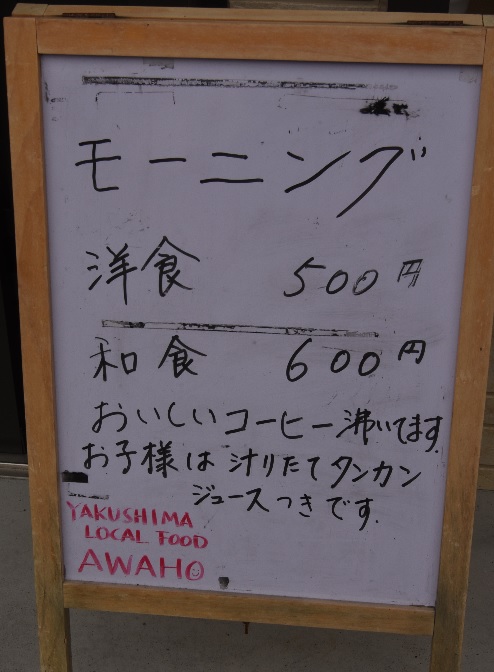 モーニング
洋食 500円
和食 600円
おいしいコーヒー沸いてます。
お子様は汁りたてタンカン
ジュースつきです.
YAKUSHIMA
LOCAL FOOD
AWAHO